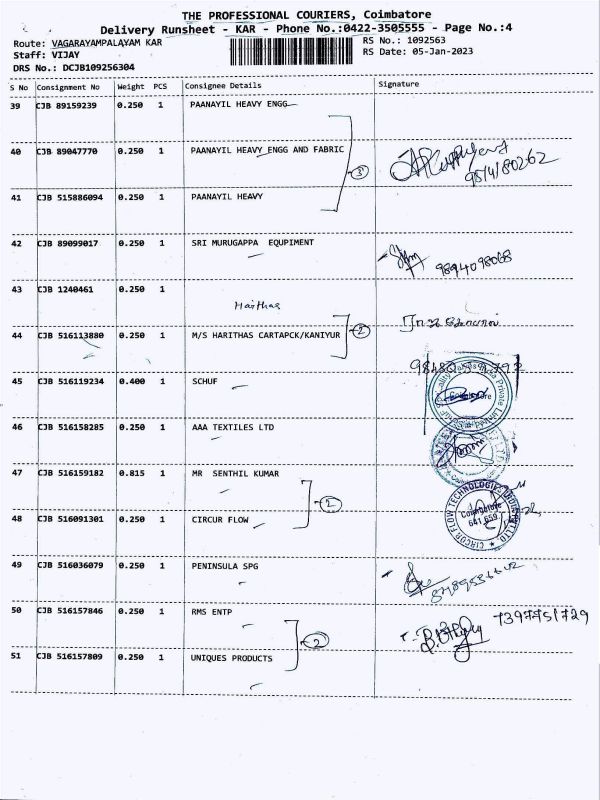 THE PROFESSIONAL COURIERS, Coimbatore
Delivery Runsheet - KAR - Phone No.:0422-3505555 - Page No.:4
Route: VAGARAYAMPALAYAM KAR
RS No.: 1092563
Staff: VIJAY
RS Date: 05-Jan-2023
DRS No.: DCJB109256304
S No Consignment No Weight PCS Consignee Details Signature
39 CJB 89159239 0.250 1 PAANAYIL HEAVY ENGG
40 CJB 89047770 0.250 1 PAANAYIL HEAVY ENGG AND FABRIC
3
41 CJB 515886094 0.250 1 PAANAYIL HEAVY
42 CJB 89099017 0.250 1 SRI MURUGAPPA EQUPIMENT
9894098068
43 CJB 1240461 0.250 1
Harithas
44 CJB 516113880 0.250 1 M/S HARITHAS CARTAPCK/KANIYUR
2
45 CJB 516119234 0.400 1 SCHUF
46 CJB 516158285 0.250 1 AAA TEXTILES LTD
47 CJB 516159182 0.815 1 MR SENTHIL KUMAR
2
48 CJB 516091301 0.250 1 CIRCUR FLOW
CIRCUR FLOW TECHNOLOGIES INDIA PVT. LTD.
Coimbatore
641 659
49 CJB 516036079 0.250 1 PENINSULA SPG
50 CJB 516157846 0.250 1 RMS ENTP
7397751729
2
51 CJB 516157809 0.250 1 UNIQUES PRODUCTS